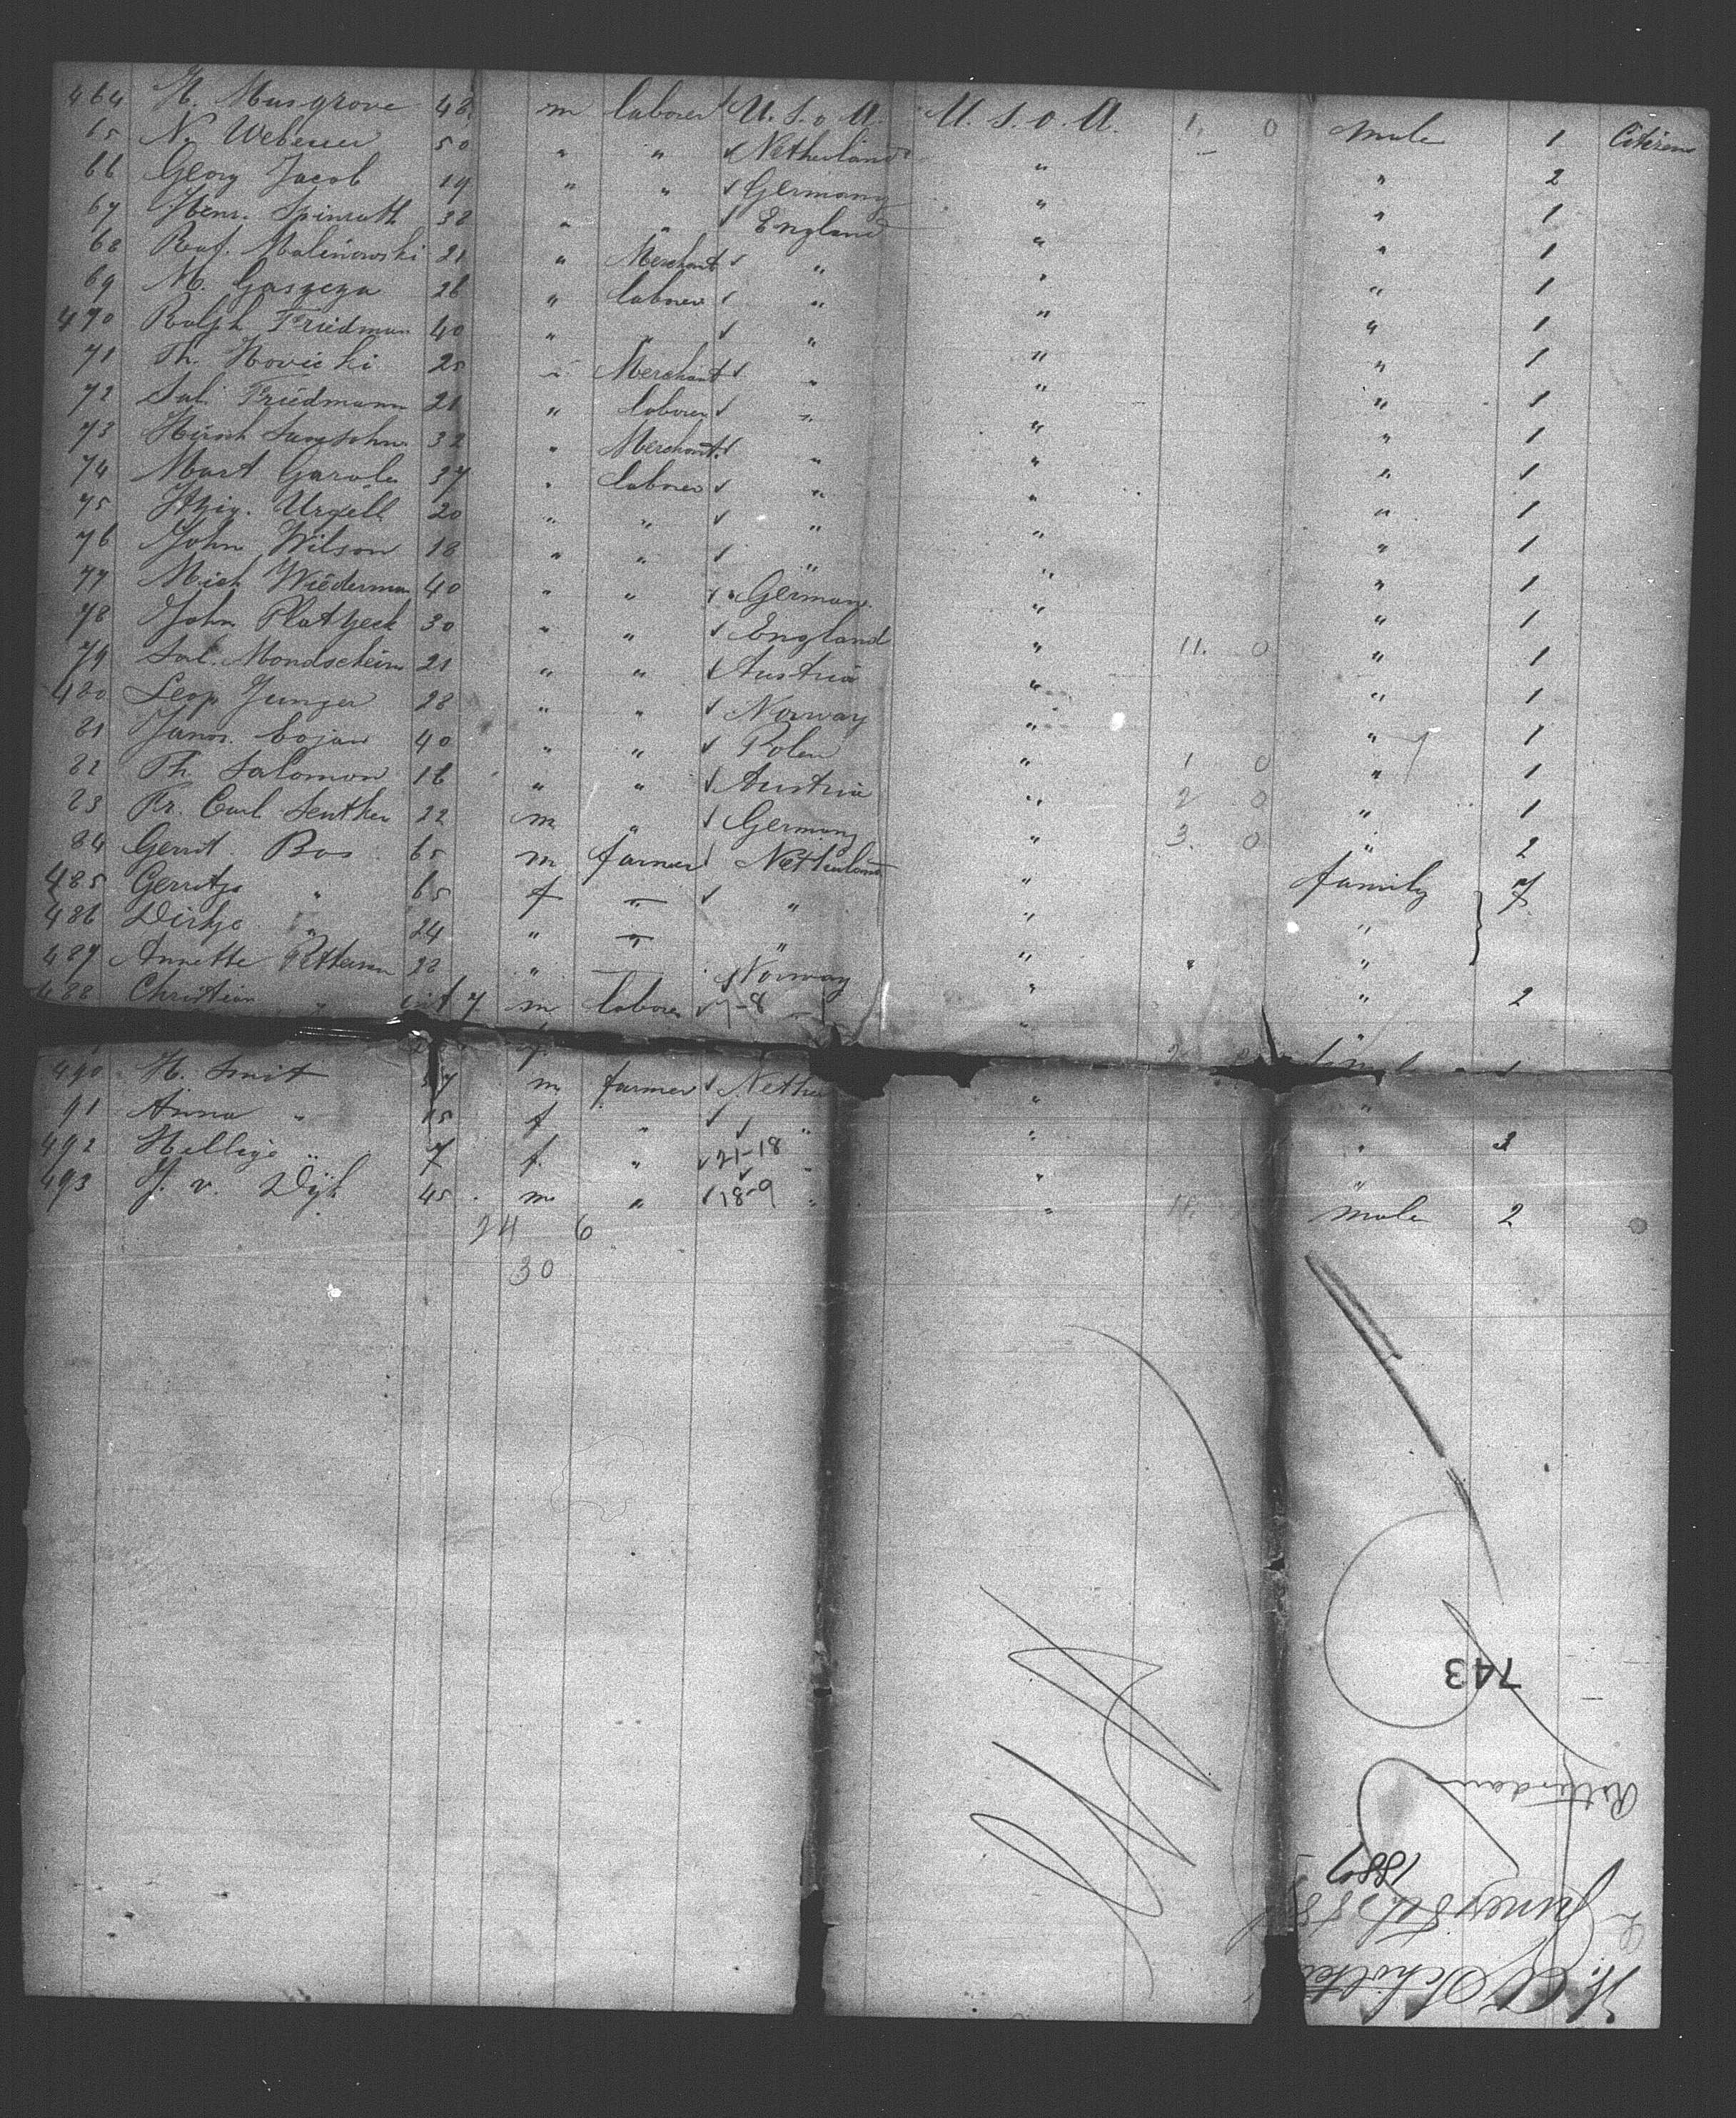 464 H. Musgrove 48 m laborer U. S. o. A. U. S. o. A. 1. 0 male 1 Citizen
65 N. Weberer 50 " " Netherland " " 2
66 Georg Jacob 19 " " Germany " " 1
67 Henr. Spinrath 38 " " England " " 1
68 Raf. Malinowski 21 " Merchant " " " 1
69 M. Gaszeza 26 " laborer " " " 1
470 Ralph Friedman 40 " " " " " 1
71 Th. Novicki 25 " Merchant " " " 1
72 Sal. Friedmann 21 " laborer " " " 1
73 Hirsch Samsohn 32 " Merchant " " " 1
74 Mart Garole 37 " laborer " " " 1
75 Itzig. Urgell 20 " " " " " 1
76 John Wilson 18 " " " " " 1
77 Mich Wiederman 40 " " Germany " " 1
78 John Platzeck 30 " " England " 11. 0 " 1
79 Sal. Mondschein 21 " " Austria " " 1
480 Leop Junger 28 " " Norway " " 1
81 Janos. Cojan 40 " " Polen " 1 0 " 1
82 Th. Salomon 16 " " Austria " 2 0 " 1
83 Fr. Carl Senther 22 m " Germany " 3. 0 " 2
84 Gerrit Bos 65 m farmer Netherland " family 7
485 Gerritje " 65 f " " " "
486 Dirkje " 24 " " " " "
487 Annette Petterson 28 " Norway " " 2
488 Christian " inft 7 m laborer 7-8 " "
490 H. Smit 37 m farmer Nethe " "
91 Anna " 15 f " " " " 3
492 Helligje " 7 f. " 21-18 " " "
493 J. v. Dijk 45 m " 18-9 " " 11. male 2
24 6
30
743
Rotterdam
1889
June 8th 1889
W. A. Scholten